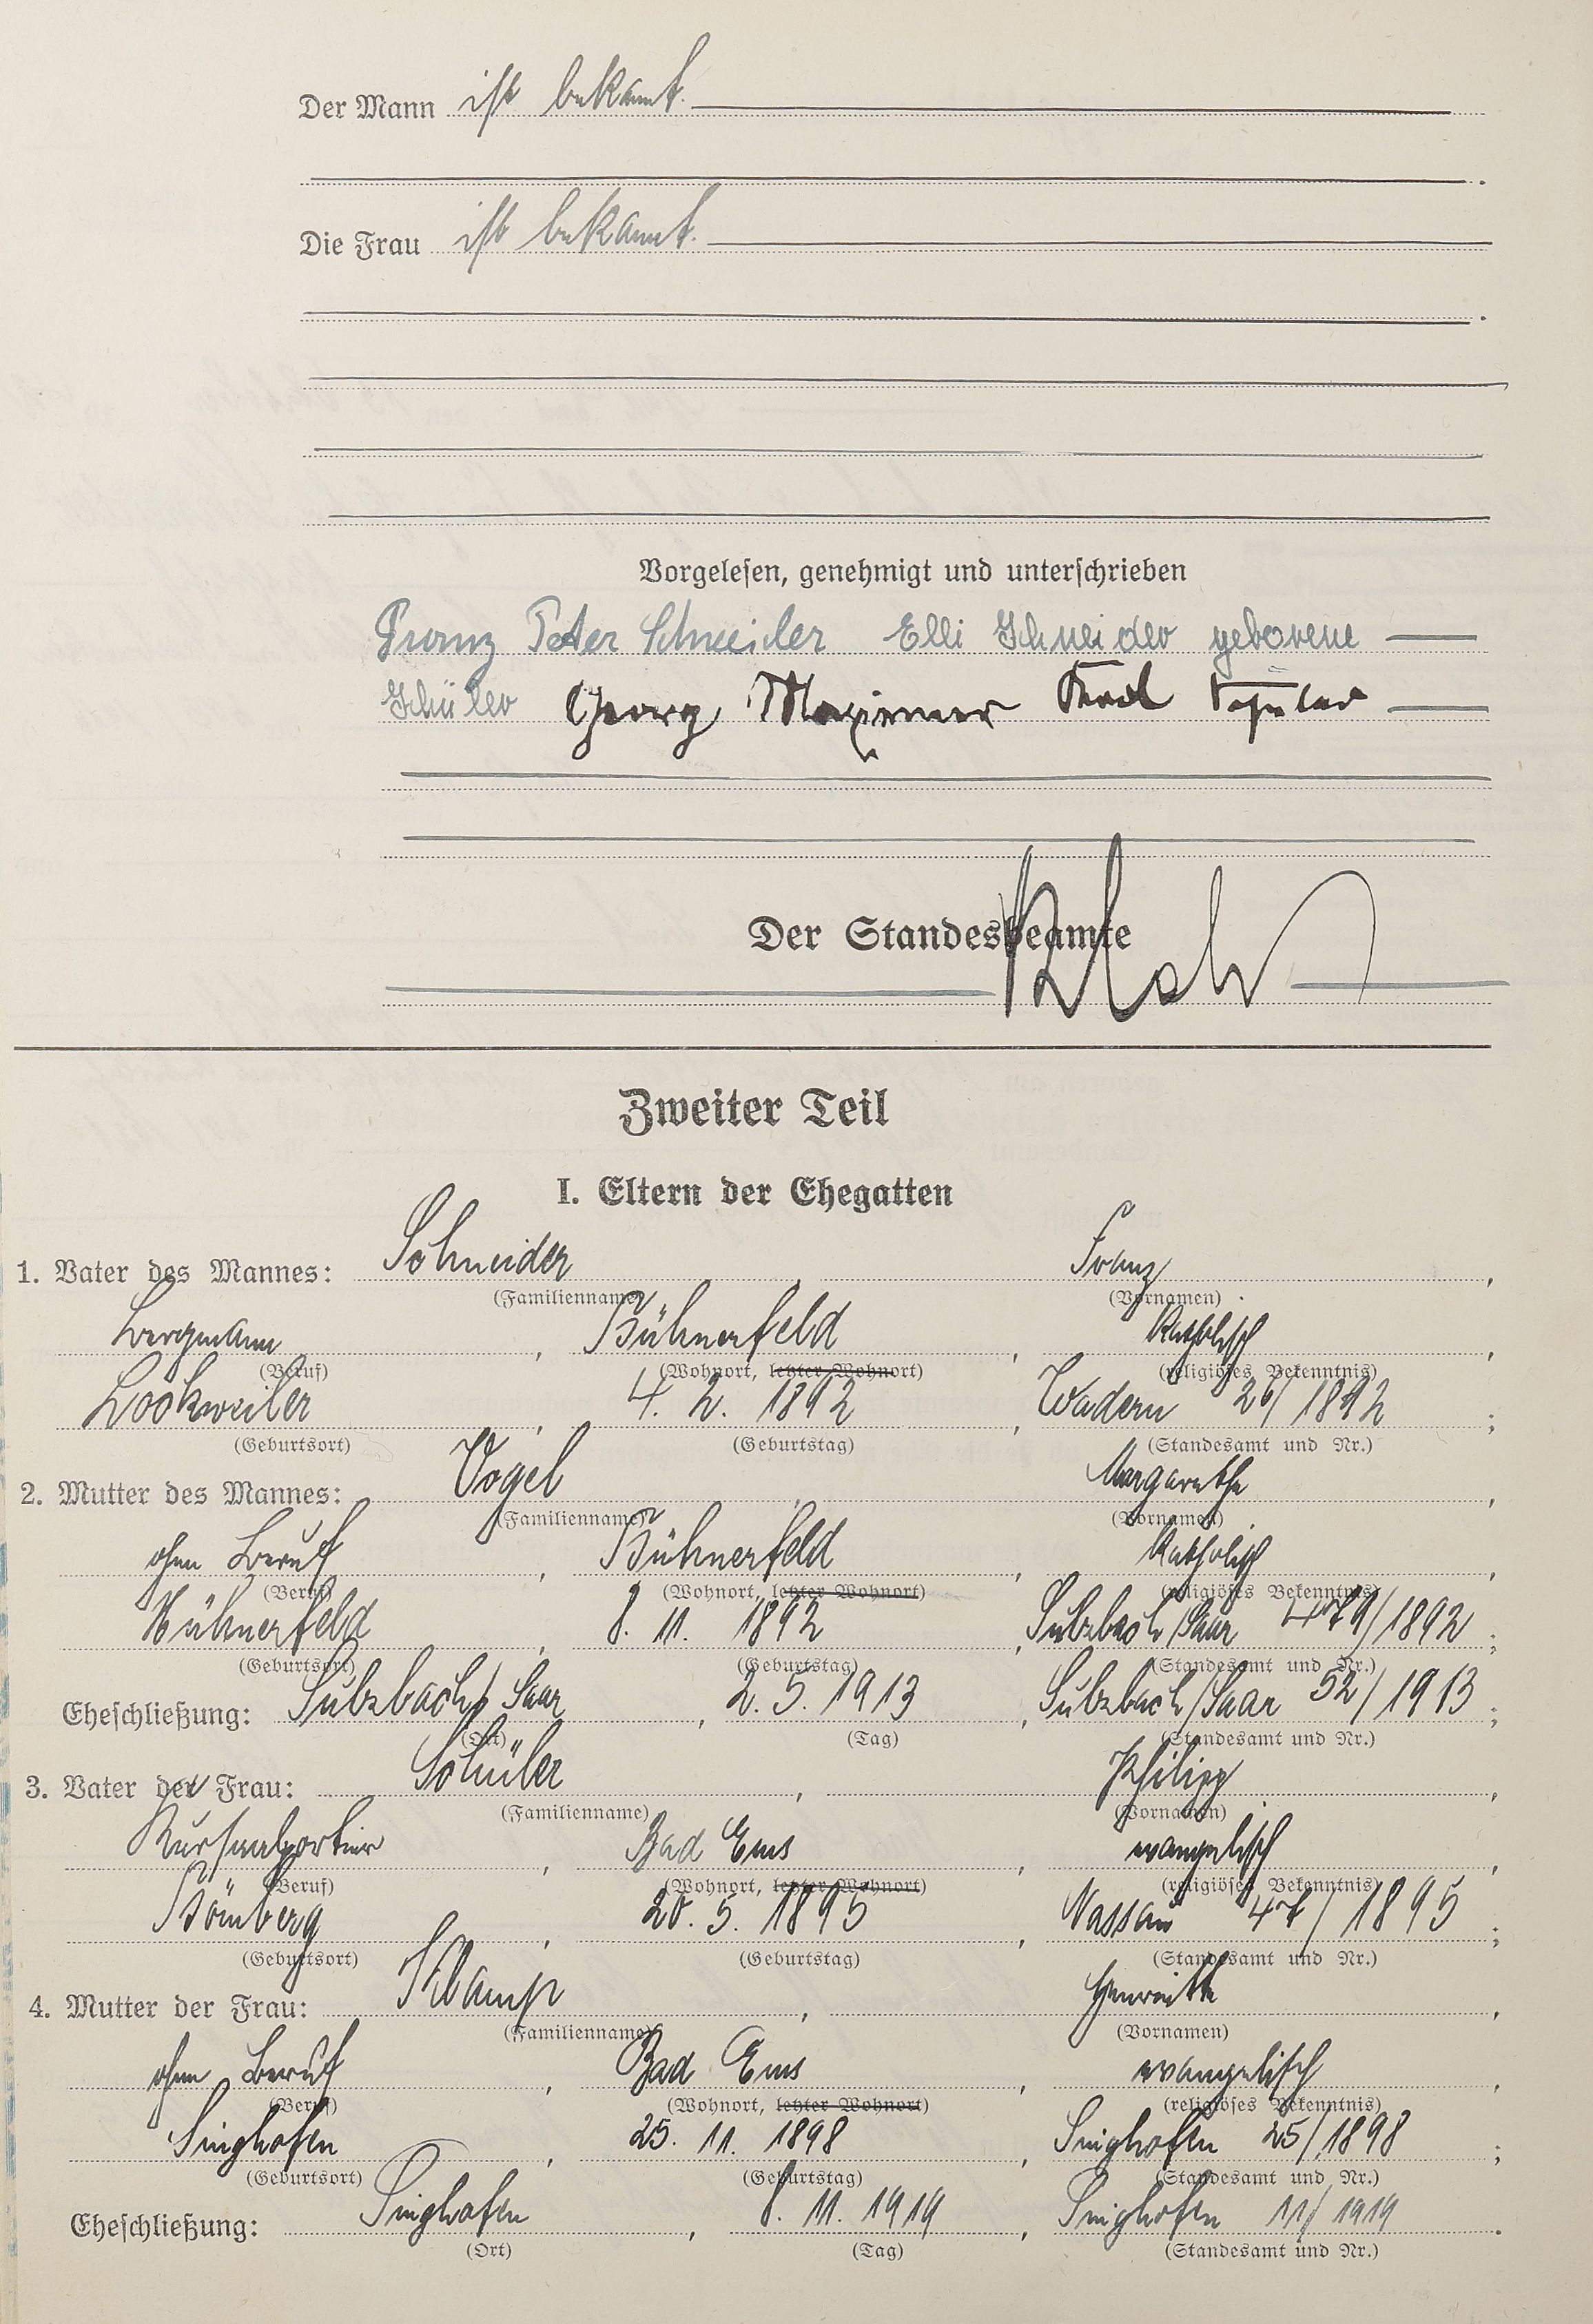 Der Mann ist bekannt.
Die Frau ist bekannt.
Vorgelesen, genehmigt und unterschrieben
Franz Peter Schneider Elli Schneider geborene
Schüler Georg Karl
Der Standesbeamte
Zweiter Teil
I. Eltern der Ehegatten
1. Vater des Mannes: Schneider, Franz,
(Familienname) (Vornamen)
Bergmann, Hühnerfeld, katholisch,
(Beruf) (Wohnort, letzter Wohnort) (religiöses Bekenntnis)
Lockweiler, 4. 2. 1892, Wadern 26/1892;
(Geburtsort) (Geburtstag) (Standesamt und Nr.)
2. Mutter des Mannes: Vogel, Margarethe,
(Familienname) (Vornamen)
ohne Beruf, Hühnerfeld, katholisch,
(Beruf) (Wohnort, letzter Wohnort) (religiöses Bekenntnis)
Hühnerfeld, 8. 11. 1892, Sulzbach/Saar 479/1892;
(Geburtsort) (Geburtstag) (Standesamt und Nr.)
Eheschließung: Sulzbach/Saar, 2. 5. 1913, Sulzbach/Saar 52/1913;
(Ort) (Tag) (Standesamt und Nr.)
3. Vater der Frau: Schüler, Philipp,
(Familienname) (Vornamen)
Kursaalportier, Bad Ems, evangelisch,
(Beruf) (Wohnort, letzter Wohnort) (religiöses Bekenntnis)
Hömberg, 20. 5. 1895, Nassau 47/1895;
(Geburtsort) (Geburtstag) (Standesamt und Nr.)
4. Mutter der Frau: Klamp, Henriette,
(Familienname) (Vornamen)
ohne Beruf, Bad Ems, evangelisch,
(Beruf) (Wohnort, letzter Wohnort) (religiöses Bekenntnis)
Singhofen, 25. 11. 1898, Singhofen 25/1898;
(Geburtsort) (Geburtstag) (Standesamt und Nr.)
Eheschließung: Singhofen, 8. 11. 1919, Singhofen 11/1919.
(Ort) (Tag) (Standesamt und Nr.)